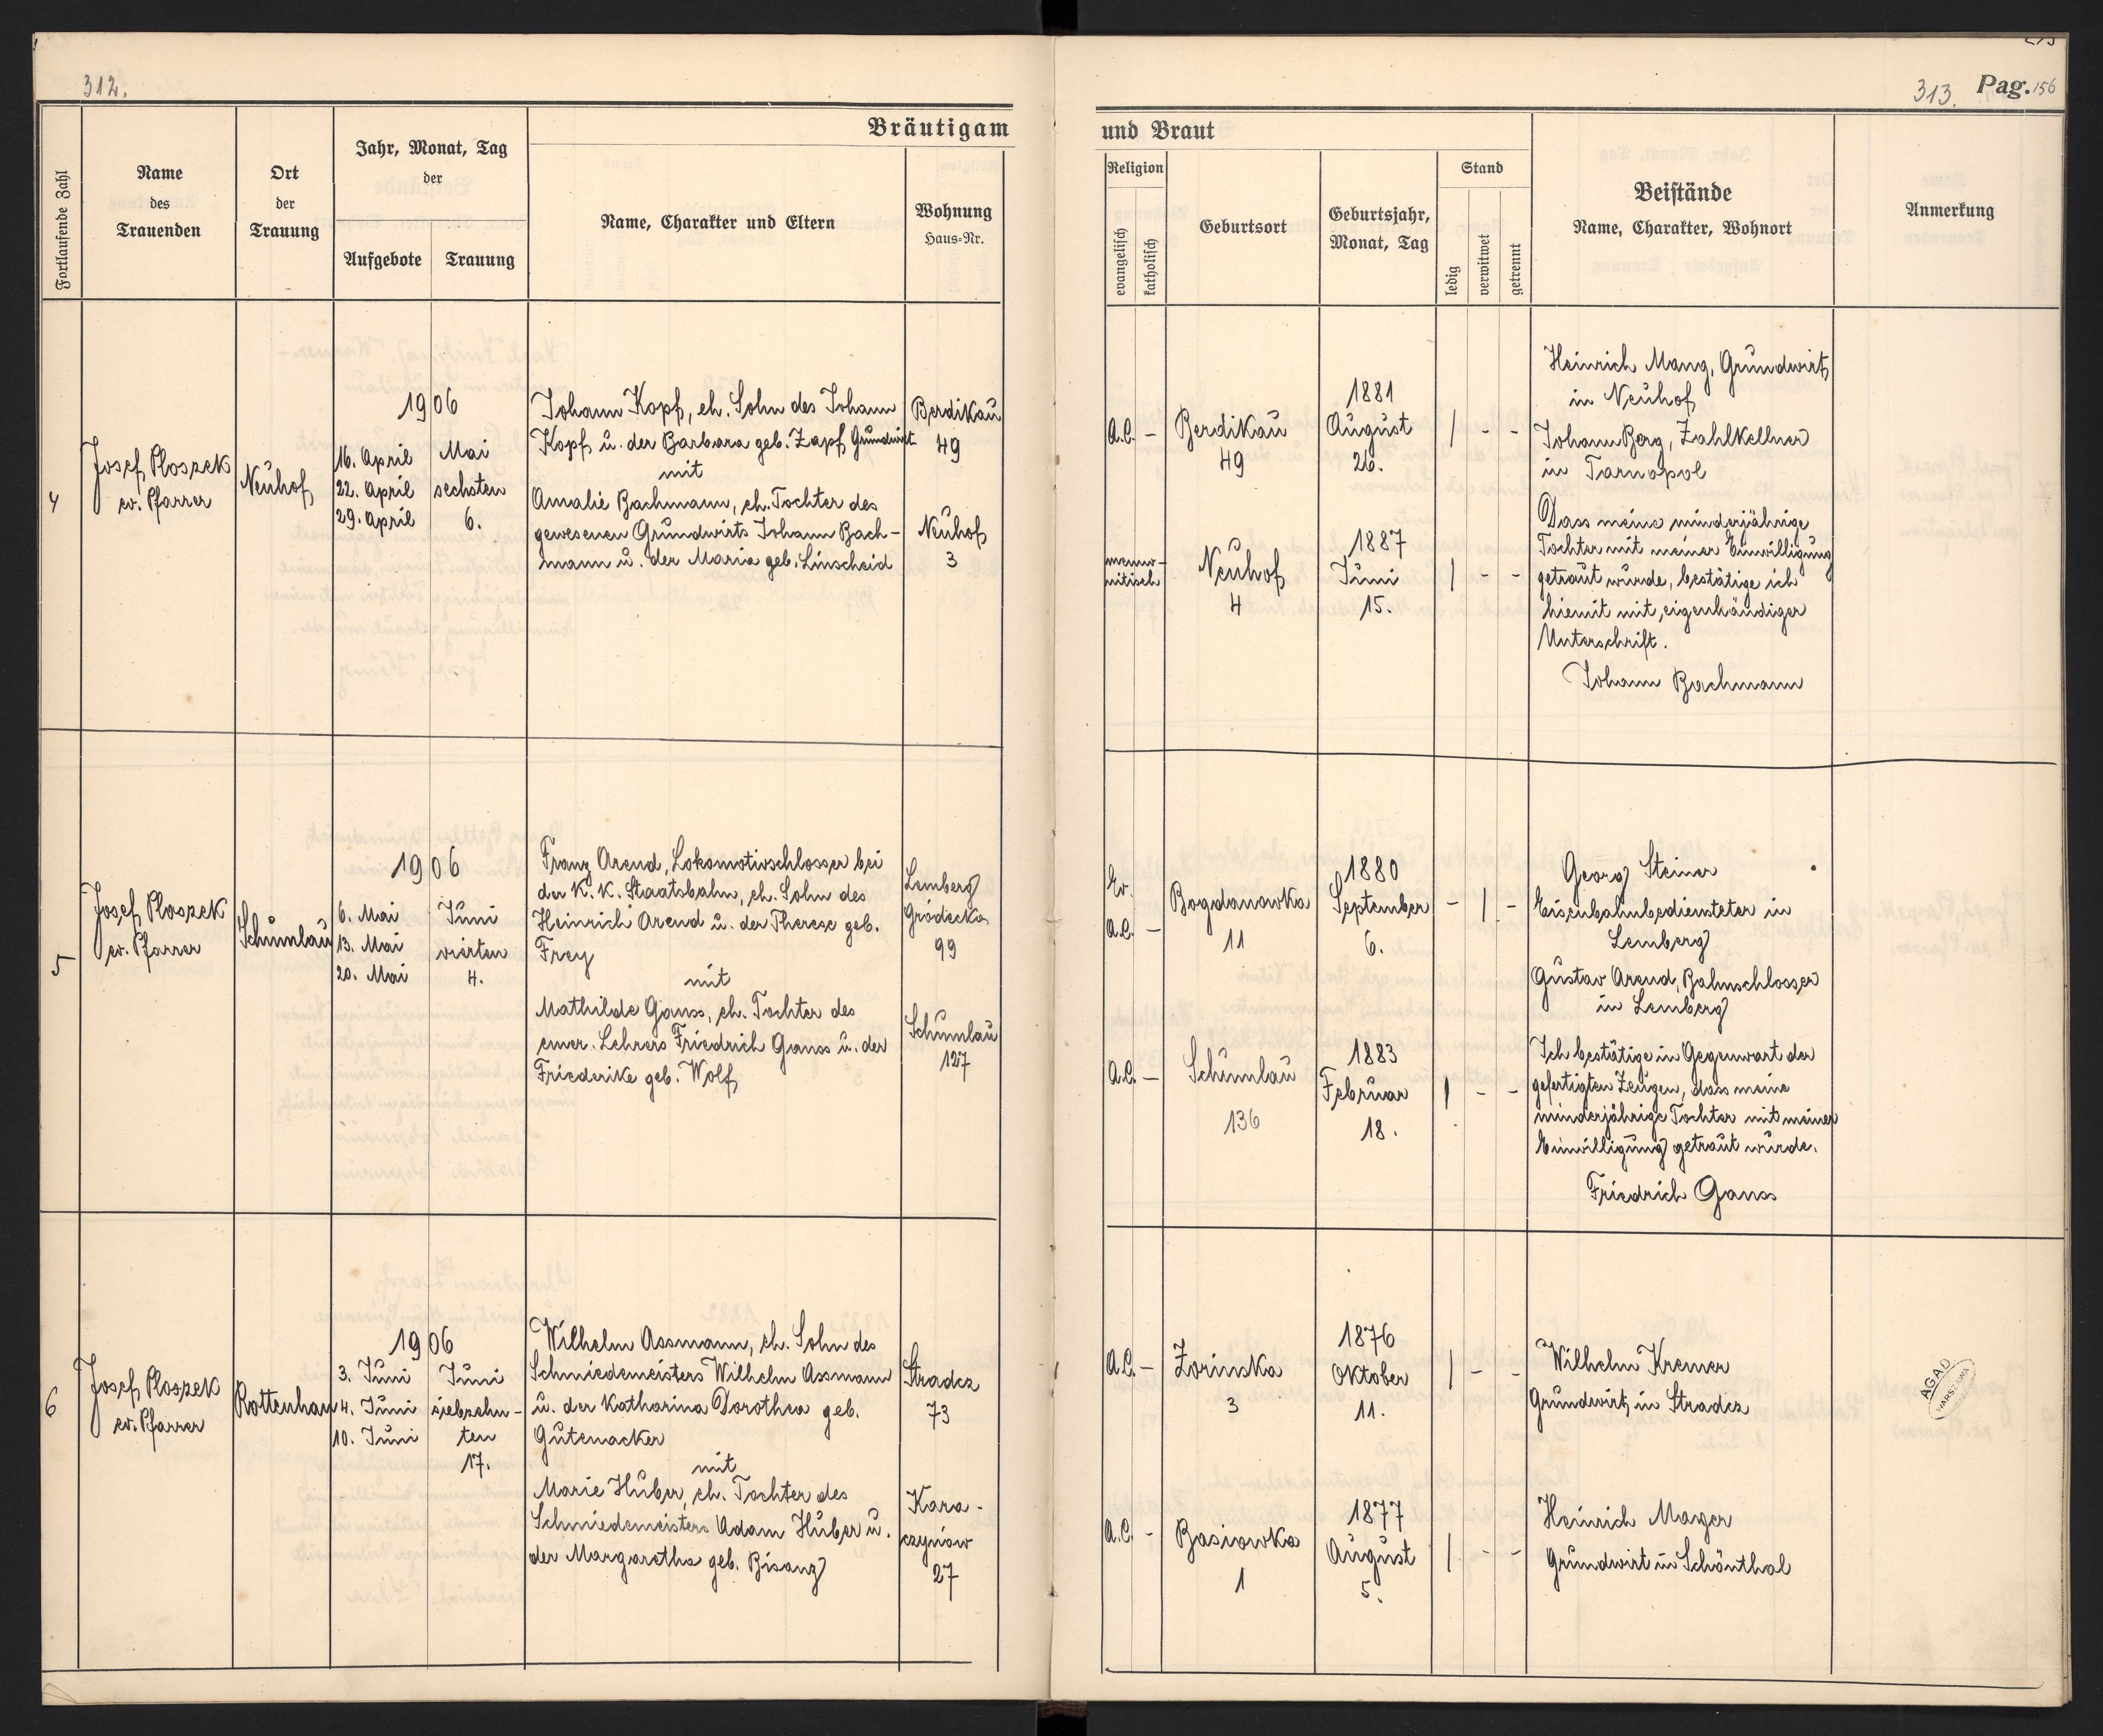 312.
313. Pag. 156
Bräutigam
und Braut
Fortlaufende Zahl
Name
des
Trauenden
Ort
der
Trauung
Jahr, Monat, Tag
der
Aufgebote
Trauung
Name, Charakter und Eltern
Wohnung
Haus=Nr.
Religion
evangelisch
katholisch
Geburtsort
Geburtsjahr,
Monat, Tag
Stand
ledig
verwitwet
getrennt
Beistände
Name, Charakter, Wohnort
Anmerkung
4
Josef Ploszek
ev. Pfarrer
Neuhof
1906
16. April
22. April
29. April
Mai
sechsten
6.
Johann Kopf, eh. Sohn des Johann
Kopf u. der Barbara geb. Zapf Grundwirt
mit
Amalie Bachmann, eh. Tochter des
gewesenen Grundwirts Johann Bach-
mann u. der Maria geb. Linscheid
Berdikau
49
Neuhof
3
A.C. -
Berdikau
49
1881
August
26.
| - -
menno-
nitisch
Neuhof
4
1887
Juni
15.
| - -
Heinrich Mang, Grundwirt
in Neuhof
Johann Berg, Zahlkellner
in Tarnopol
Dass meine minderjährige
Tochter mit meiner Einwilligung
getraut wurde, bestätige ich
hiemit mit eigenhändiger
Unterschrift.
Johann Bachmann
5
Josef Ploszek
ev. Pfarrer
Schumlau
1906
6. Mai
13. Mai
20. Mai
Juni
vierten
4.
Franz Arend, Lokomotivschlosser bei
der K. K. Staatsbahn, eh. Sohn des
Heinrich Arend u. der Therese geb.
Frey
mit
Mathilde Gauss, eh. Tochter des
emer. Lehrers Friedrich Gauss u. der
Friederike geb. Wolf
Lemberg
Gródecka
99
Schumlau
127
Ev.
A.C. -
Bogdanowka
11
1880
September
6.
- | -
A.C. -
Schumlau
136
1883
Februar
18.
| - -
Georg Steiner
Eisenbahnbediensteter in
Lemberg
Gustav Arend, Bahnschlosser
in Lemberg
Ich bestätige in Gegenwart der
gefertigten Zeugen, dass meine
minderjährige Tochter mit meiner
Einwilligung getraut wurde.
Friedrich Gauss
6
Josef Ploszek
ev. Pfarrer
Rottenhan
1906
3. Juni
4. Juni
10. Juni
Juni
siebzehn-
ten
17.
Wilhelm Assmann, eh. Sohn des
Schmiedemeisters Wilhelm Assmann
u. der Katharina Dorothea geb.
Gutenacker
mit
Marie Huber, eh. Tochter des
Schmiedemeisters Adam Huber u.
der Margaretha geb. Bisanz
Stradcz
73
Kara-
czynów
27
A.C. -
Zorinska
3
1876
Oktober
11.
| - -
A.C. -
Basiowka
1
1877
August
5.
| - -
Wilhelm Kremer
Grundwirt in Stradcz
Heinrich Mager
Grundwirt in Schönthal
AGAD
WARSZAWA